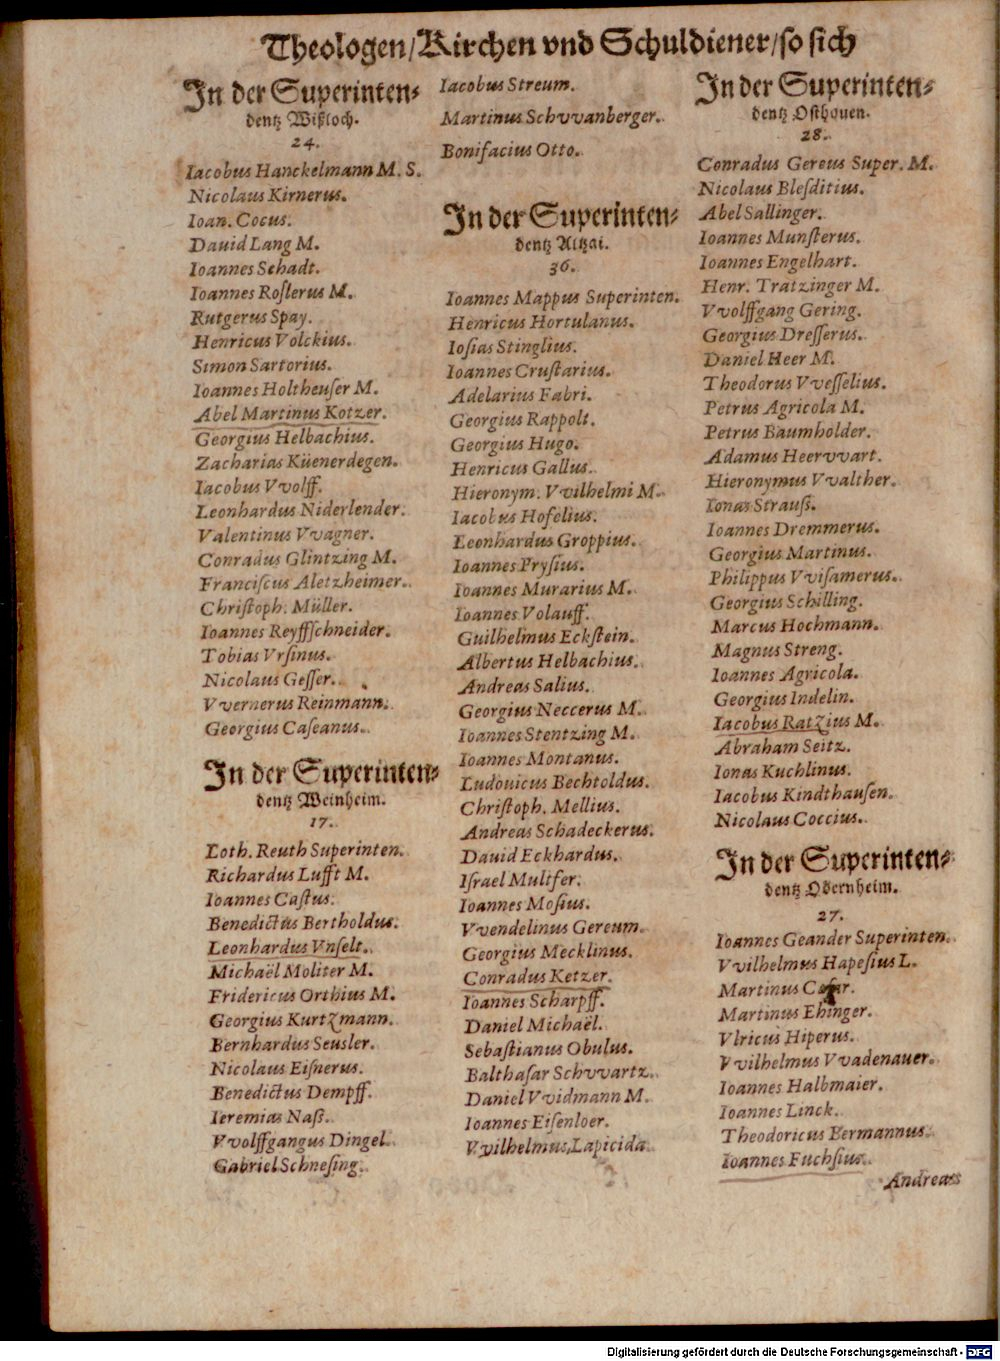 Theologen/Kirchen vnd Schuldiener/so sich
In der Superinten⸗
dentz Wißloch.
24.
Iacobus Hanckelmann M. S.
Nicolaus Kirnerus.
Ioan. Cocus.
Dauid Lang M.
Ioannes Schadt.
Ioannes Roſlerus M.
Rutgerus Spay.
Henricus Volckius.
Simon Sartorius.
Ioannes Holtheuſer M.
Abel Martinus Kotzer.
Georgius Helbachius.
Zacharias Küenerdegen.
Iacobus VVolff.
Leonhardus Niderlender.
Valentinus VVagner.
Conradus Glintzing M.
Franciſcus Aletzheimer.
Chriſtoph. Müller.
Ioannes Reyffſchneider.
Tobias Vrſinus.
Nicolaus Geſſer.
VVernerus Reinmann.
Georgius Caſeanus.
In der Superinten⸗
dentz Weinheim.
17.
Loth. Reuth Superinten.
Richardus Lufft M.
Ioannes Caſtus.
Benedictus Bertholdus.
Leonhardus Vnſelt.
Michaël Moliter M.
Fridericus Orthius M.
Georgius Kurtzmann.
Bernhardus Seusler.
Nicolaus Eiſnerus.
Benedictus Dempff.
Ieremias Naß.
VVolffgangus Dingel.
Gabriel Schneſing.
Iacobus Streum.
Martinus Schvvanberger.
Bonifacius Otto.
In der Superinten⸗
dentz Altzai.
36.
Ioannes Mappus Superinten.
Henricus Hortulanus.
Ioſias Stinglius.
Ioannes Cruſtarius.
Adelarius Fabri.
Georgius Rappolt.
Georgius Hugo.
Henricus Gallus.
Hieronym. VVilhelmi M.
Iacobus Hofelius.
Leonhardus Groppius.
Ioannes Pryſius.
Ioannes Murarius M.
Ioannes Volauff.
Guilhelmus Eckſtein.
Albertus Helbachius.
Andreas Salius.
Georgius Neccerus M.
Ioannes Stentzing M.
Ioannes Montanus.
Ludouicus Bechtoldus.
Chriſtoph. Mellius.
Andreas Schadeckerus.
Dauid Eckhardus.
Iſrael Multfer.
Ioannes Moſius.
VVendelinus Gereum.
Georgius Mecklinus.
Conradus Ketzer.
Ioannes Scharpff.
Daniel Michaël.
Sebaſtianus Obulus.
Balthaſar Schvvartz.
Daniel VVidmann M.
Ioannes Eiſenloer.
VVilhelmus Lapicida.
In der Superinten⸗
dentz Oſthouen.
28.
Conradus Gereus Super. M.
Nicolaus Bleſditius.
Abel Sallinger.
Ioannes Munſterus.
Ioannes Engelhart.
Henr. Tratzinger M.
VVolffgang Gering.
Georgius Dreſſerus.
Daniel Heer M.
Theodorus VVeſſelius.
Petrus Agricola M.
Petrus Baumholder.
Adamus Heervvart.
Hieronymus VValther.
Ionas Strauß.
Ioannes Dremmerus.
Georgius Martinus.
Philippus VViſamerus.
Georgius Schilling.
Marcus Hochmann.
Magnus Streng.
Ioannes Agricola.
Georgius Indelin.
Iacobus Ratzius M.
Abraham Seitz.
Ionas Kuchlinus.
Iacobus Kindthauſen.
Nicolaus Coccius.
In der Superinten⸗
dentz Odernheim.
27.
Ioannes Geander Superinten.
VVilhelmus Hapeſius L.
Martinus
Martinus Ehinger.
Vlricus Hiperus.
VVilhelmus VVadenauer.
Ioannes Halbmaier.
Ioannes Linck.
Theodoricus Bermannus.
Ioannes Fuchſius.
Andreas
Digitalisierung gefördert durch die Deutsche Forschungsgemeinschaft - DFG